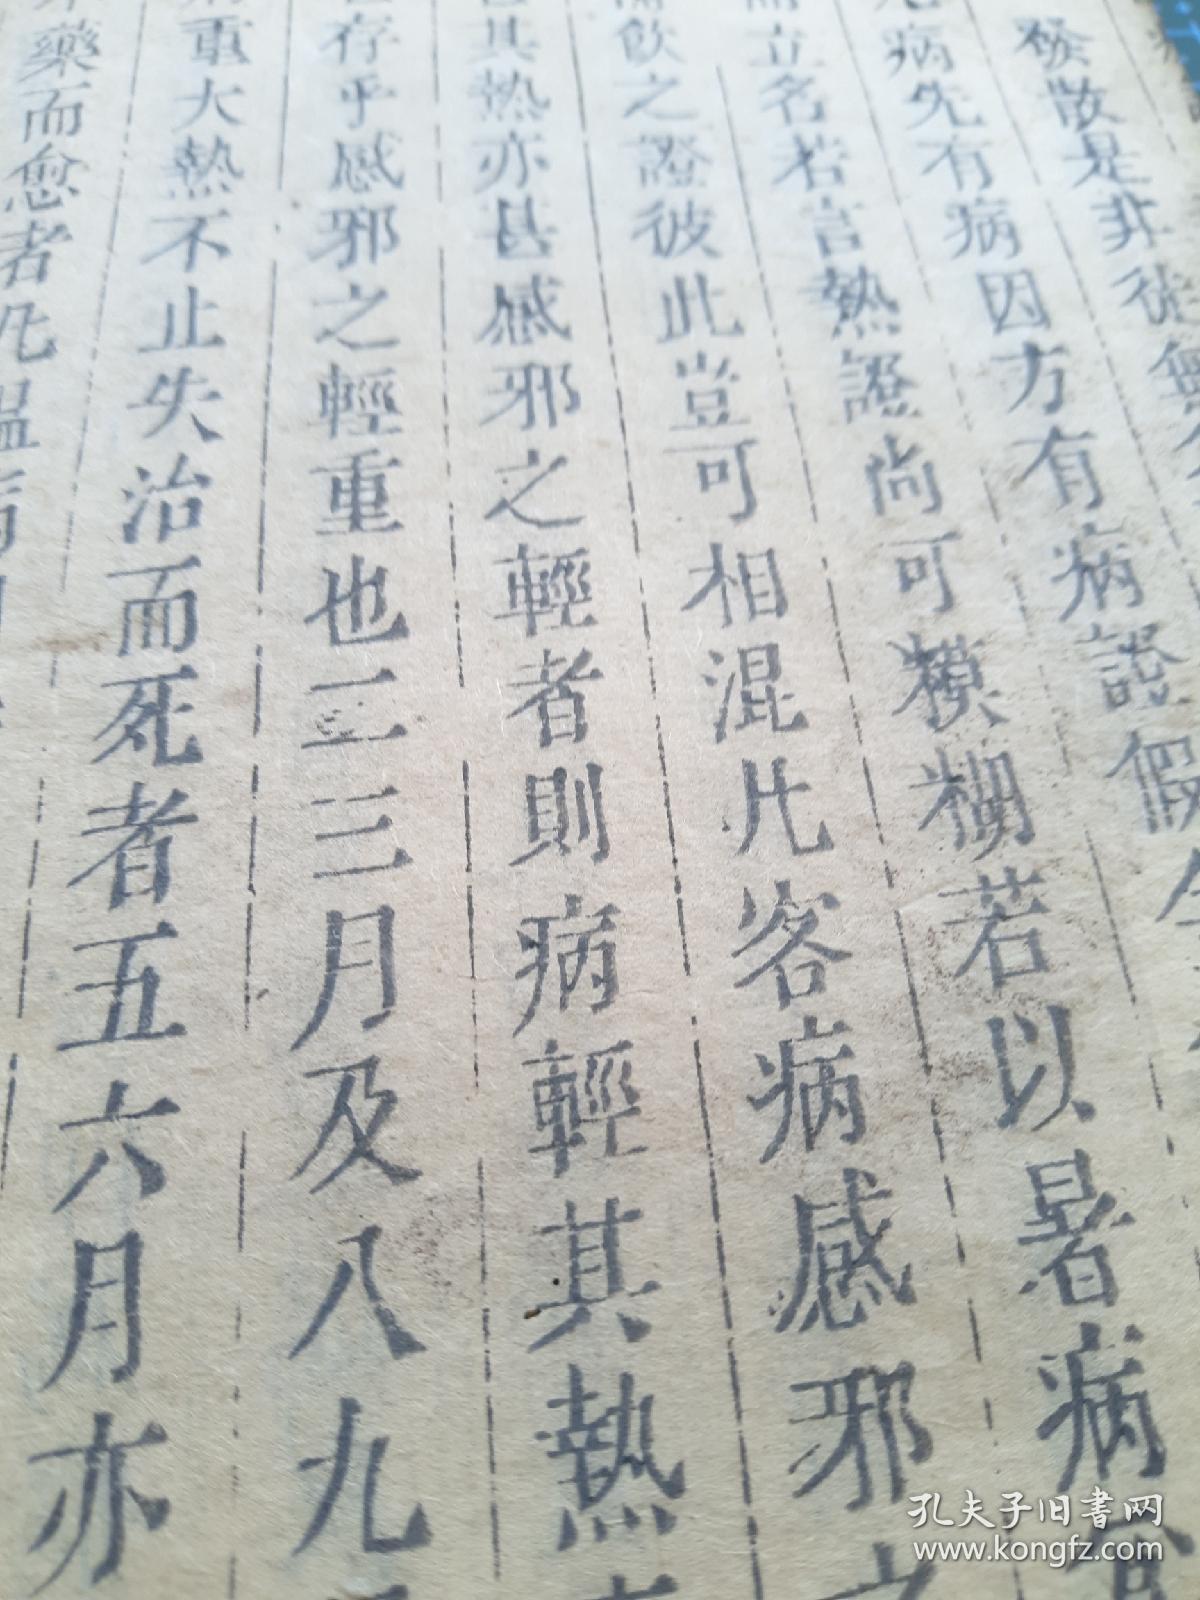 發散是非徒無
病先有病因方有病證假令
而立名若言熱證尚可模糊若以暑病
飲之證彼此豈可相混凡客病感邪之
其熱亦甚感邪之輕者則病輕其熱
存乎感邪之輕重也二三月及八九
重大熱不止失治而死者五六月亦
藥而愈者凡溫病
孔夫子旧书网
www.kongfz.com